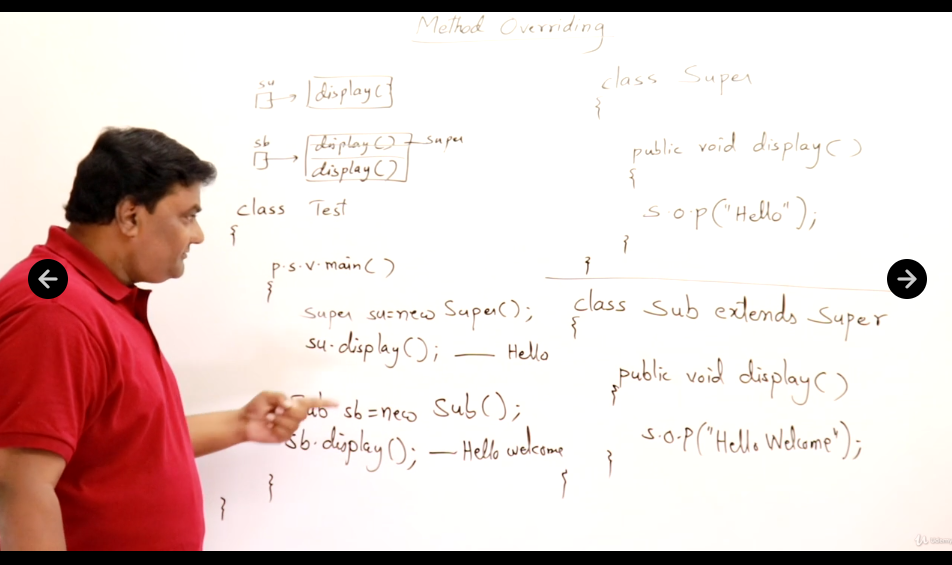 Method Overriding
su
display()
sb
display() super
display()
class Test
{
p.s.v.main()
{
Super su=new Super();
su.display(); — Hello
Sub sb=new Sub();
sb.display(); — Hello welcome
}
}
class Super
{
public void display()
{
s.o.p("Hello");
}
}
class Sub extends Super
{
public void display()
{
s.o.p("Hello Welcome");
}
}